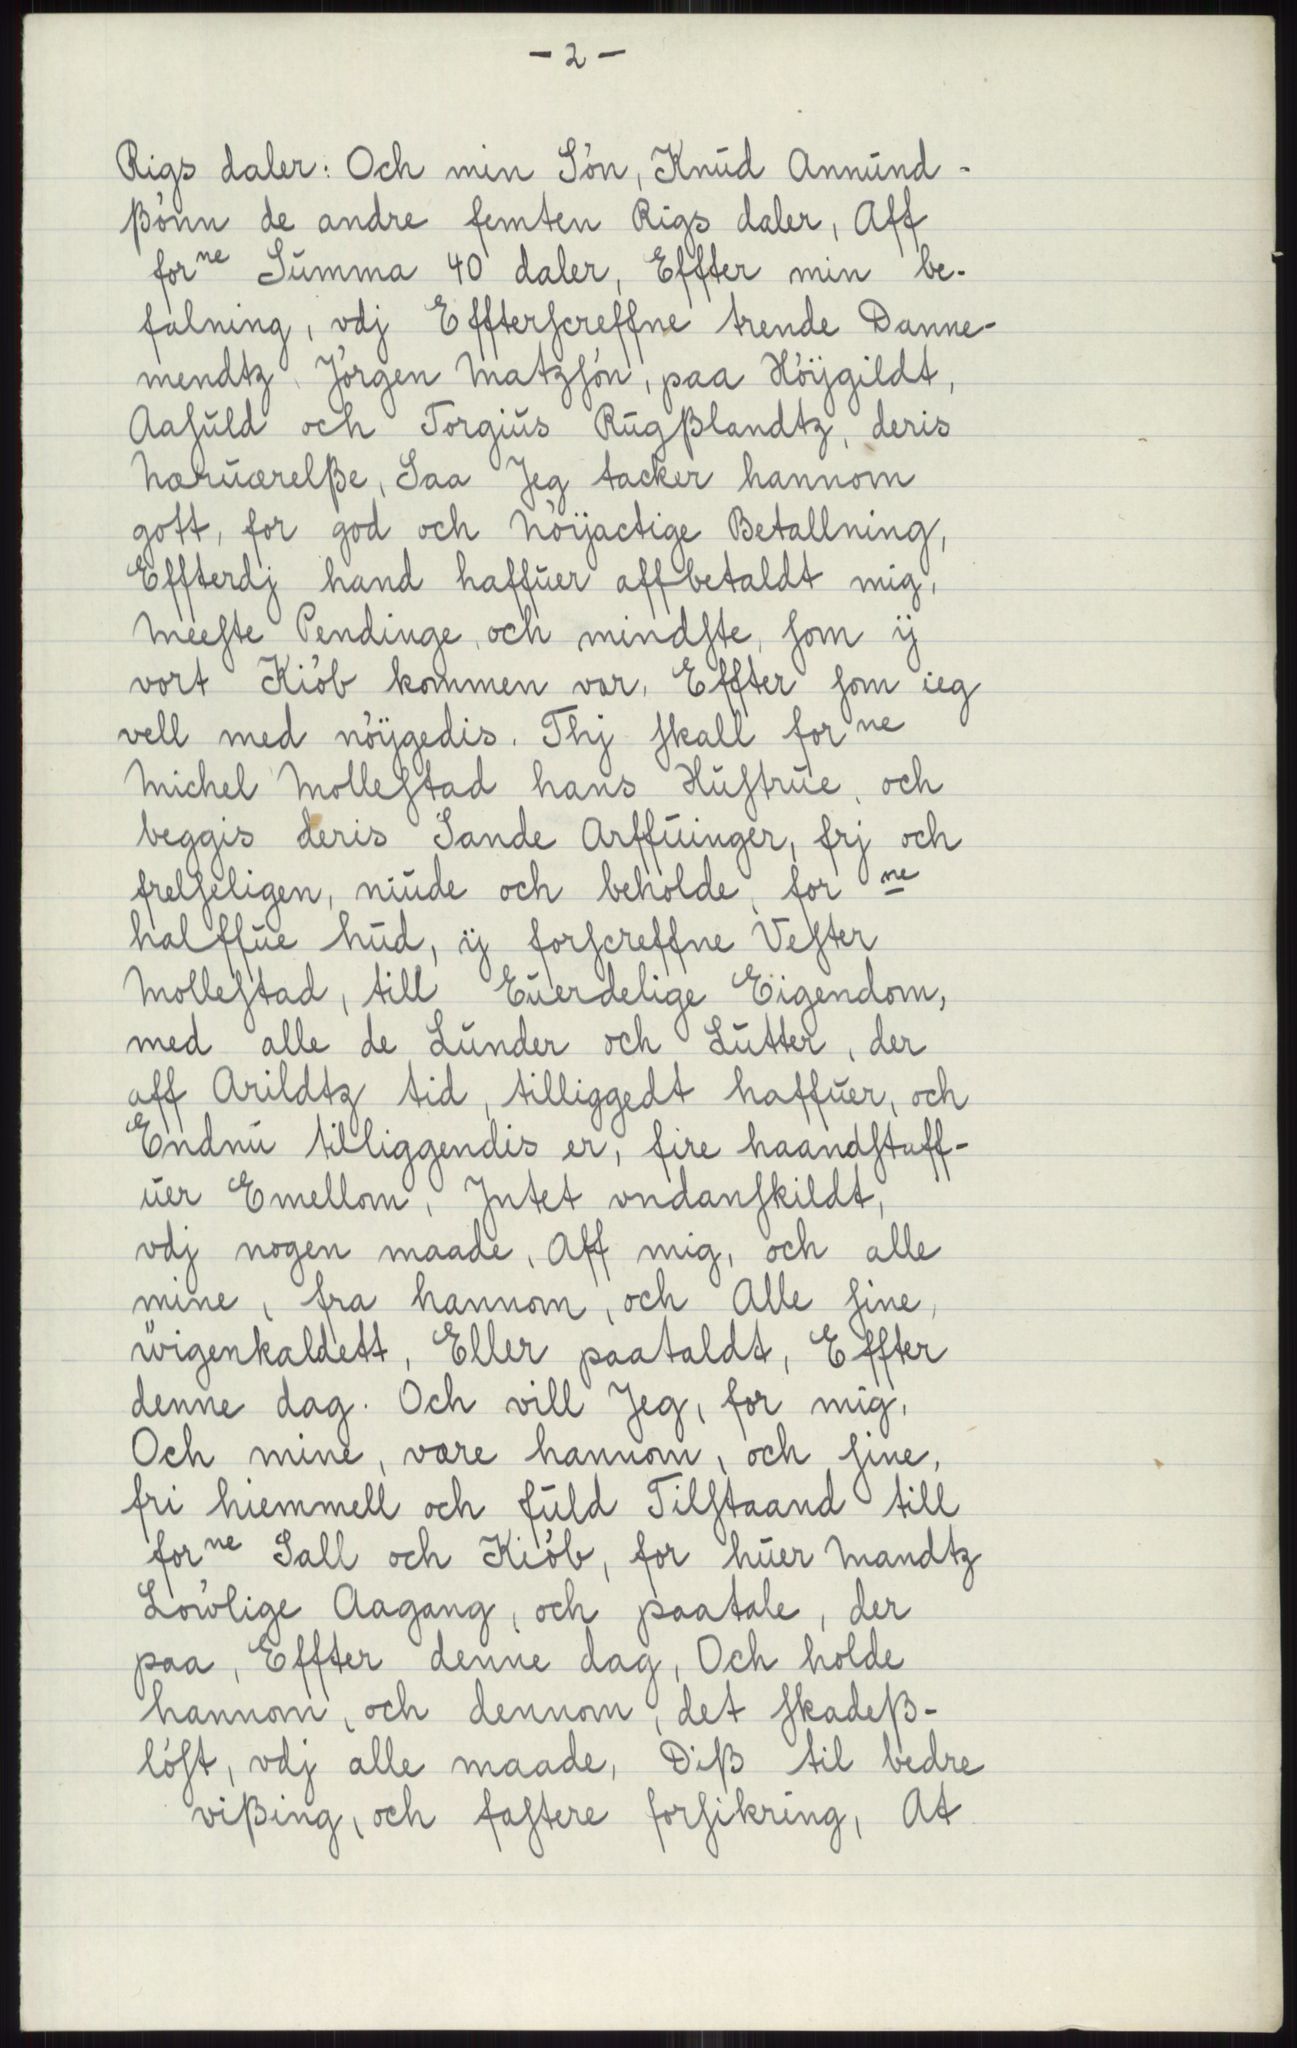 - 2 -
Rigs daler: Och min Sön, Knud Annund-
ßönn de andre femten Rigs daler, Aff
forne Summa 40 daler, Effter min be-
falning, vdj Effterscreffne trende Danne-
mendtz Jörgen Matzsön, paa Höijgildt,
Aasuld och Torgius Rugßlandtz, deris
Næruærelße, Saa Jeg tacker hannom
gott, for god och Nöijactige Betallning,
Effterdj hand haffuer affbetaldt mig,
Meeste Pendinge och mindste, som ij
vort Kiöb kommen var, Effter som ieg
vell med nöijgedis. Thj skall forne
Michel Mollestad hans Hustrue, och
beggis deris Sande Arffuinger, frj och
frelseligen, niude och beholde, forne
halffue hud, ij forscreffne Vester
Mollestad, till Euerdelige Eigendom,
med alle de Lunder och Lutter, der
aff Arildtz tid, tilliggedt haffuer, och
Endnu tilliggendis er, fire haandstaff-
uer Emellom, Jntet vndanskildt,
vdj nogen maade, Aff mig, och alle
mine, fra hannom, och Alle sine,
wigenkaldett, Eller paataldt, Effter
denne dag. Och vill Jeg, for mig,
Och mine, være hannom, och sine,
fri hiemmell och fuld Tilstaand till
forne Sall och Kiöb, for huer Mandtz
Lowlige Aagang, och paatale, der
paa, Effter denne dag, Och holde
hannom, och dennom, det skadeß-
löst, vdj alle maade, Diß til bedre
vißing, och fastere forsikring, At